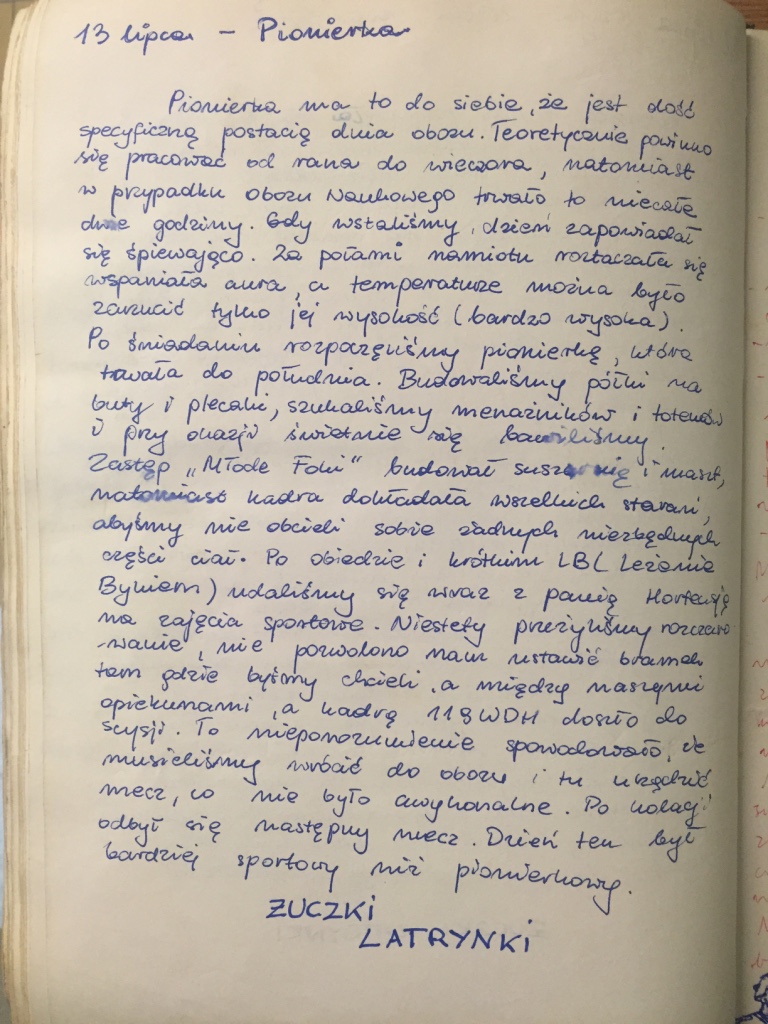 13 lipca - Pionierka
Pionierka ma to do siebie, że jest dość
specyficzną postacią dnia obozu. Teoretycznie powinno
się pracować od rana do wieczora, natomiast
w przypadku obozu Naukowego trwało to niecałe
dwie godziny. Gdy wstaliśmy, dzień zapowiadał
się śpiewająco. Za połami namiotu roztaczała się
wspaniała aura, a temperaturze można było
zarzucić tylko jej wysokość (bardzo wysoka).
Po śniadaniu rozpoczęliśmy pionierkę, która
trwała do południa. Budowaliśmy półki na
buty i plecaki, szukaliśmy menażników i totemów
i przy okazji świetnie się bawiliśmy.
Zastęp „Młode Foki" budował suszarnię i maszt,
natomiast kadra dokładała wszelkich starań,
abyśmy nie obcieli sobie żadnych niezbędnych
części ciał. Po obiedzie i krótkim LB (Leżenie
Bykiem) udaliśmy się wraz z panią Hortensją
na zajęcia sportowe. Niestety przeżyliśmy rozczaro
-wanie, nie pozwolono nam ustawić bramek
tam gdzie byśmy chcieli, a między naszymi
opiekunami, a kadrą 119 WDH doszło do
scysji. To nieporozumienie spowodowało, że
musieliśmy wrócić do obozu i tu urządzić
mecz, co nie było awykonalne. Po kolacji
odbył się następny mecz. Dzień ten był
bardziej sportowy niż pionierkowy.
ŻUCZKI
LATRYNKI